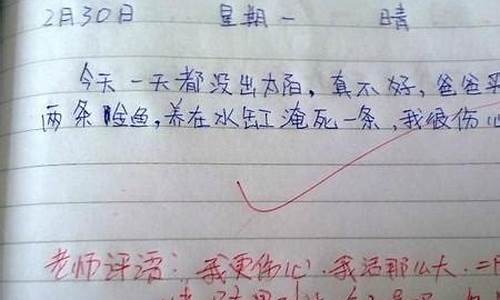 2月30日 星期一 晴
今天一天都没出太阳，真不好，爸爸买
两条金鱼，养在水缸淹死一条，我很伤心
老师评语：我更伤心，我活那么大，二月